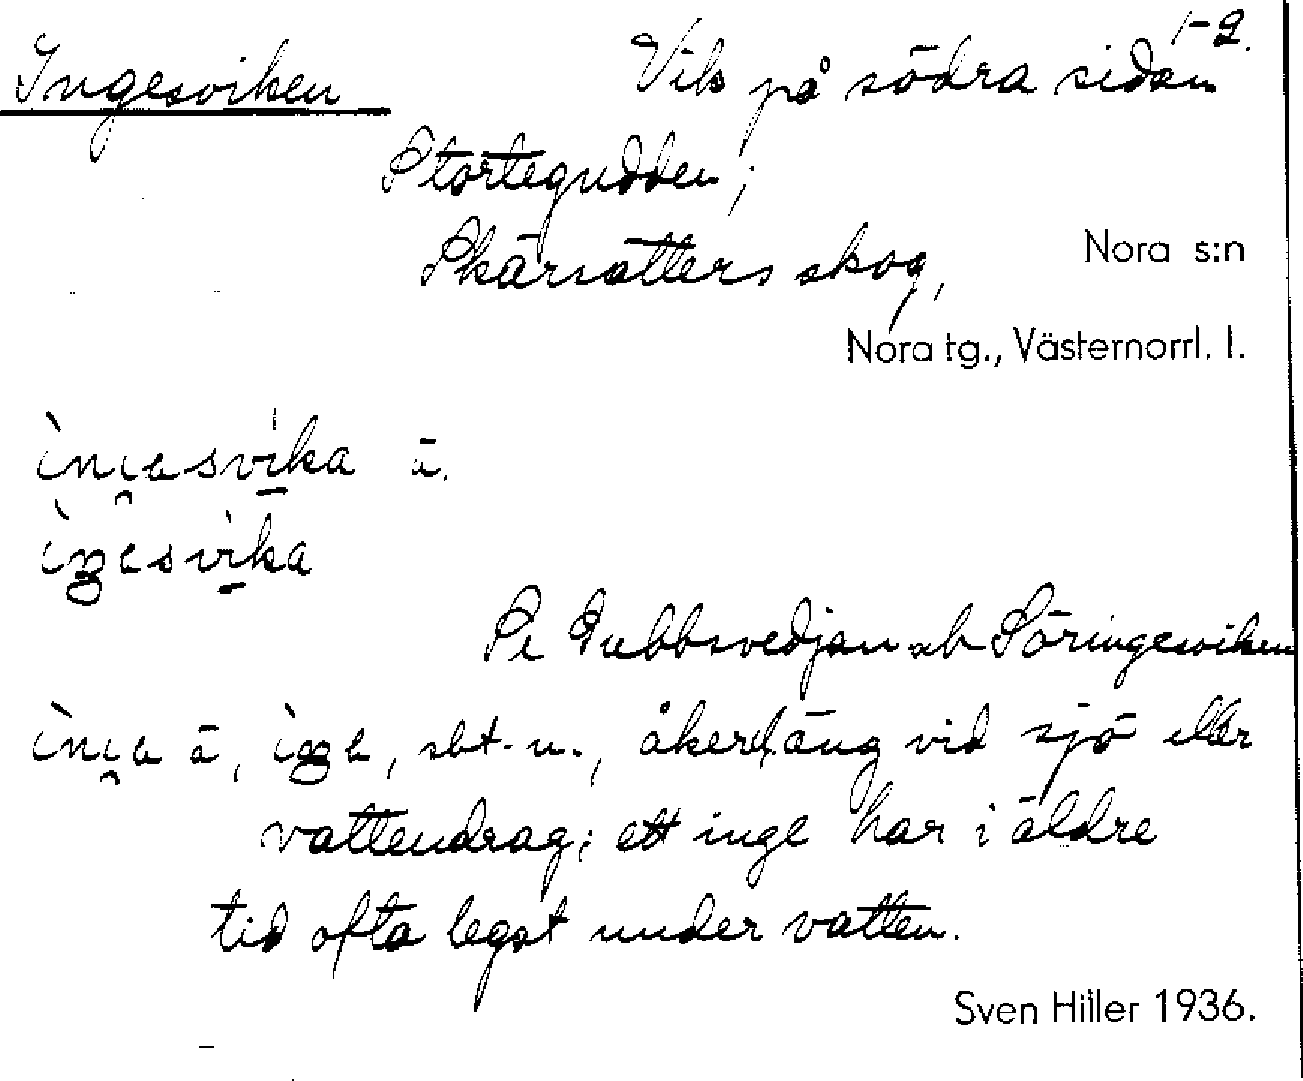 1-2.
Ingesviken Vik på södra sidan
Stortegudden;
Skärsätters skog, Nora s:n
Nora tg., Västernorrl. l.
ä.
Se Gubbsvedjan och Söringesviken
ä, sbt. n., åker l. äng vid sjö eller
vattendrag; ett inge har i äldre
tid ofta legat under vatten.
Sven Hiller 1936.